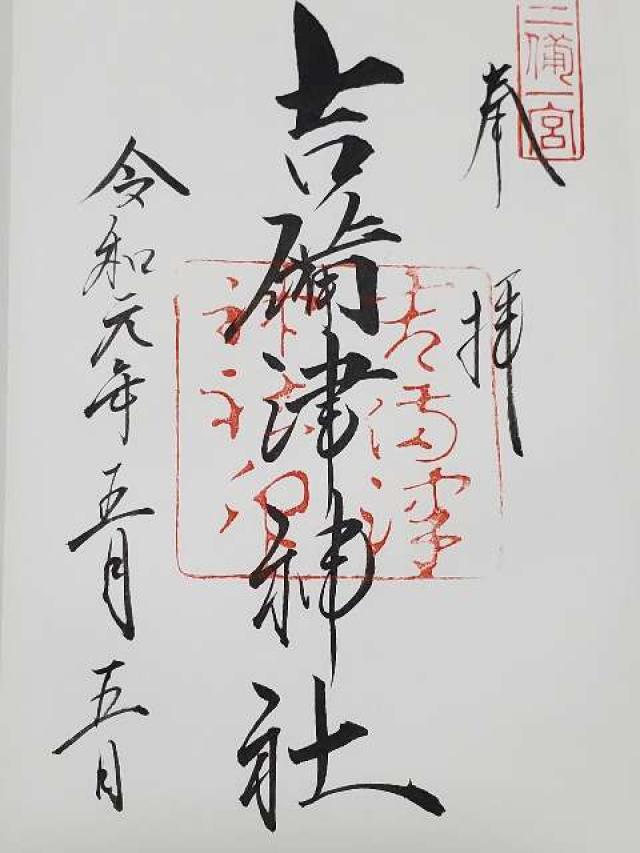 三備一宮
奉拝
吉備津神社
吉備津
神社印
令和元年五月五日